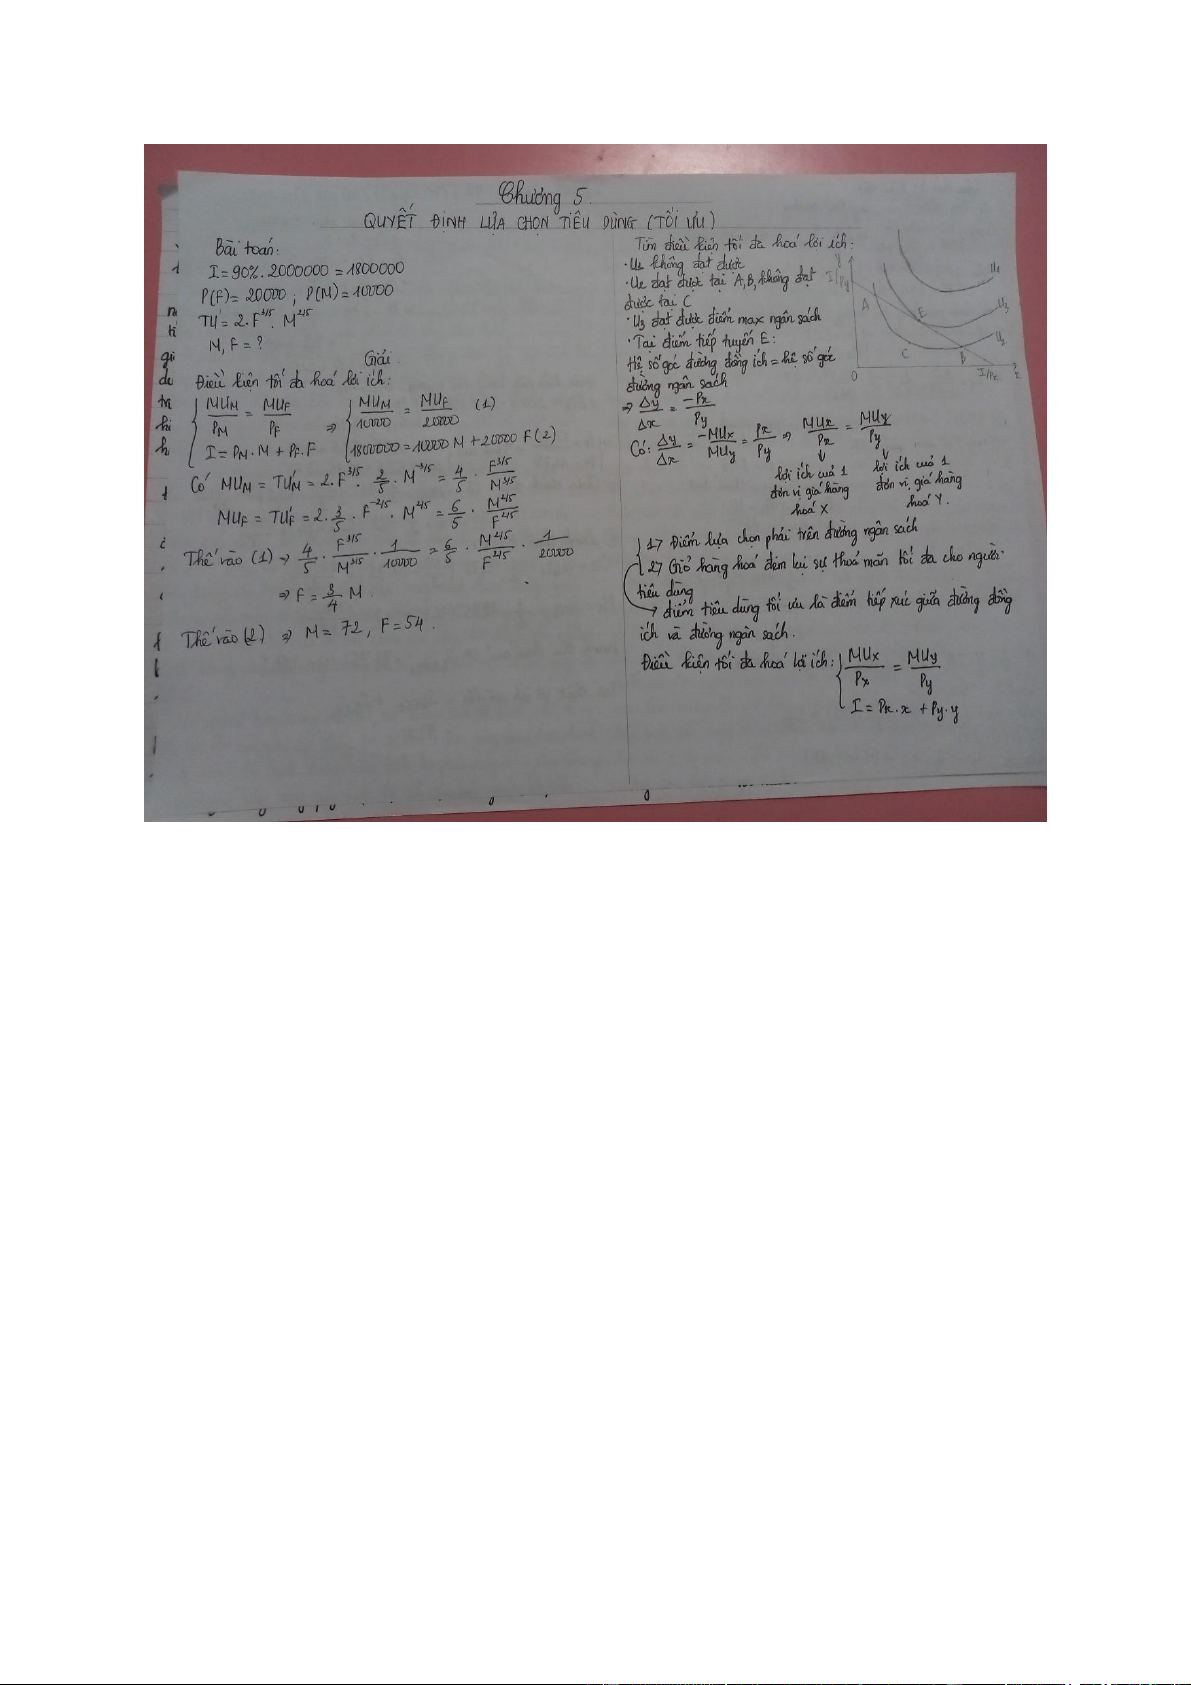 Chương 5.
QUYẾT ĐỊNH LỰA CHỌN TIÊU DÙNG (TỐI ƯU)
Bài toán:
I = 90%. 2000000 = 1800000
P(F) = 20000 ; P(M) = 10000
TU = 2. F^3/5 . M^2/5
M, F = ?
Giải
Điều kiện tối đa hoá lợi ích:
MU_M/P_M = MU_F/P_F ⇒ MU_M/10000 = MU_F/20000 (1)
I = P_M.M + P_F.F 1800000 = 10000 M + 20000 F (2)
Có MU_M = TU'_M = 2. F^3/5 . 2/5 . M^-3/5 = 4/5 . F^3/5/M^3/5
MU_F = TU'_F = 2. 3/5 . F^-2/5 . M^2/5 = 6/5 . M^2/5/F^2/5
Thế vào (1) ⇒ 4/5 . F^3/5/M^3/5 . 1/10000 = 6/5 . M^2/5/F^2/5 . 1/20000
⇒ F = 3/4 M.
Thế vào (2) ⇒ M = 72, F = 54.
Tìm điều kiện tối đa hoá lợi ích:
không đạt được
đạt được tại A, B, không đạt
được tại C
· U3 đạt được điểm max ngân sách
· Tại điểm tiếp tuyến E:
Hệ số góc đường đồng ích = hệ số góc
đường ngân sách
⇒ Δy/Δx = -Px/Py
Có: Δy/Δx = -MUx/MUy = Px/Py ⇒ MUx/Px = MUy/Py
lợi ích của 1
đơn vị giá hàng
hoá X
lợi ích của 1
đơn vị giá hàng
hoá Y.
I/Py
A
E
C
B
U3
0
I/Px
1> Điểm lựa chọn phải trên đường ngân sách
2> Giỏ hàng hoá đem lại sự thoả mãn tối đa cho người
tiêu dùng
→ điểm tiêu dùng tối ưu là điểm tiếp xúc giữa đường đồng
ích và đường ngân sách.
Điều kiện tối đa hoá lợi ích: MUx/Px = MUy/Py
I = Px.x + Py.y